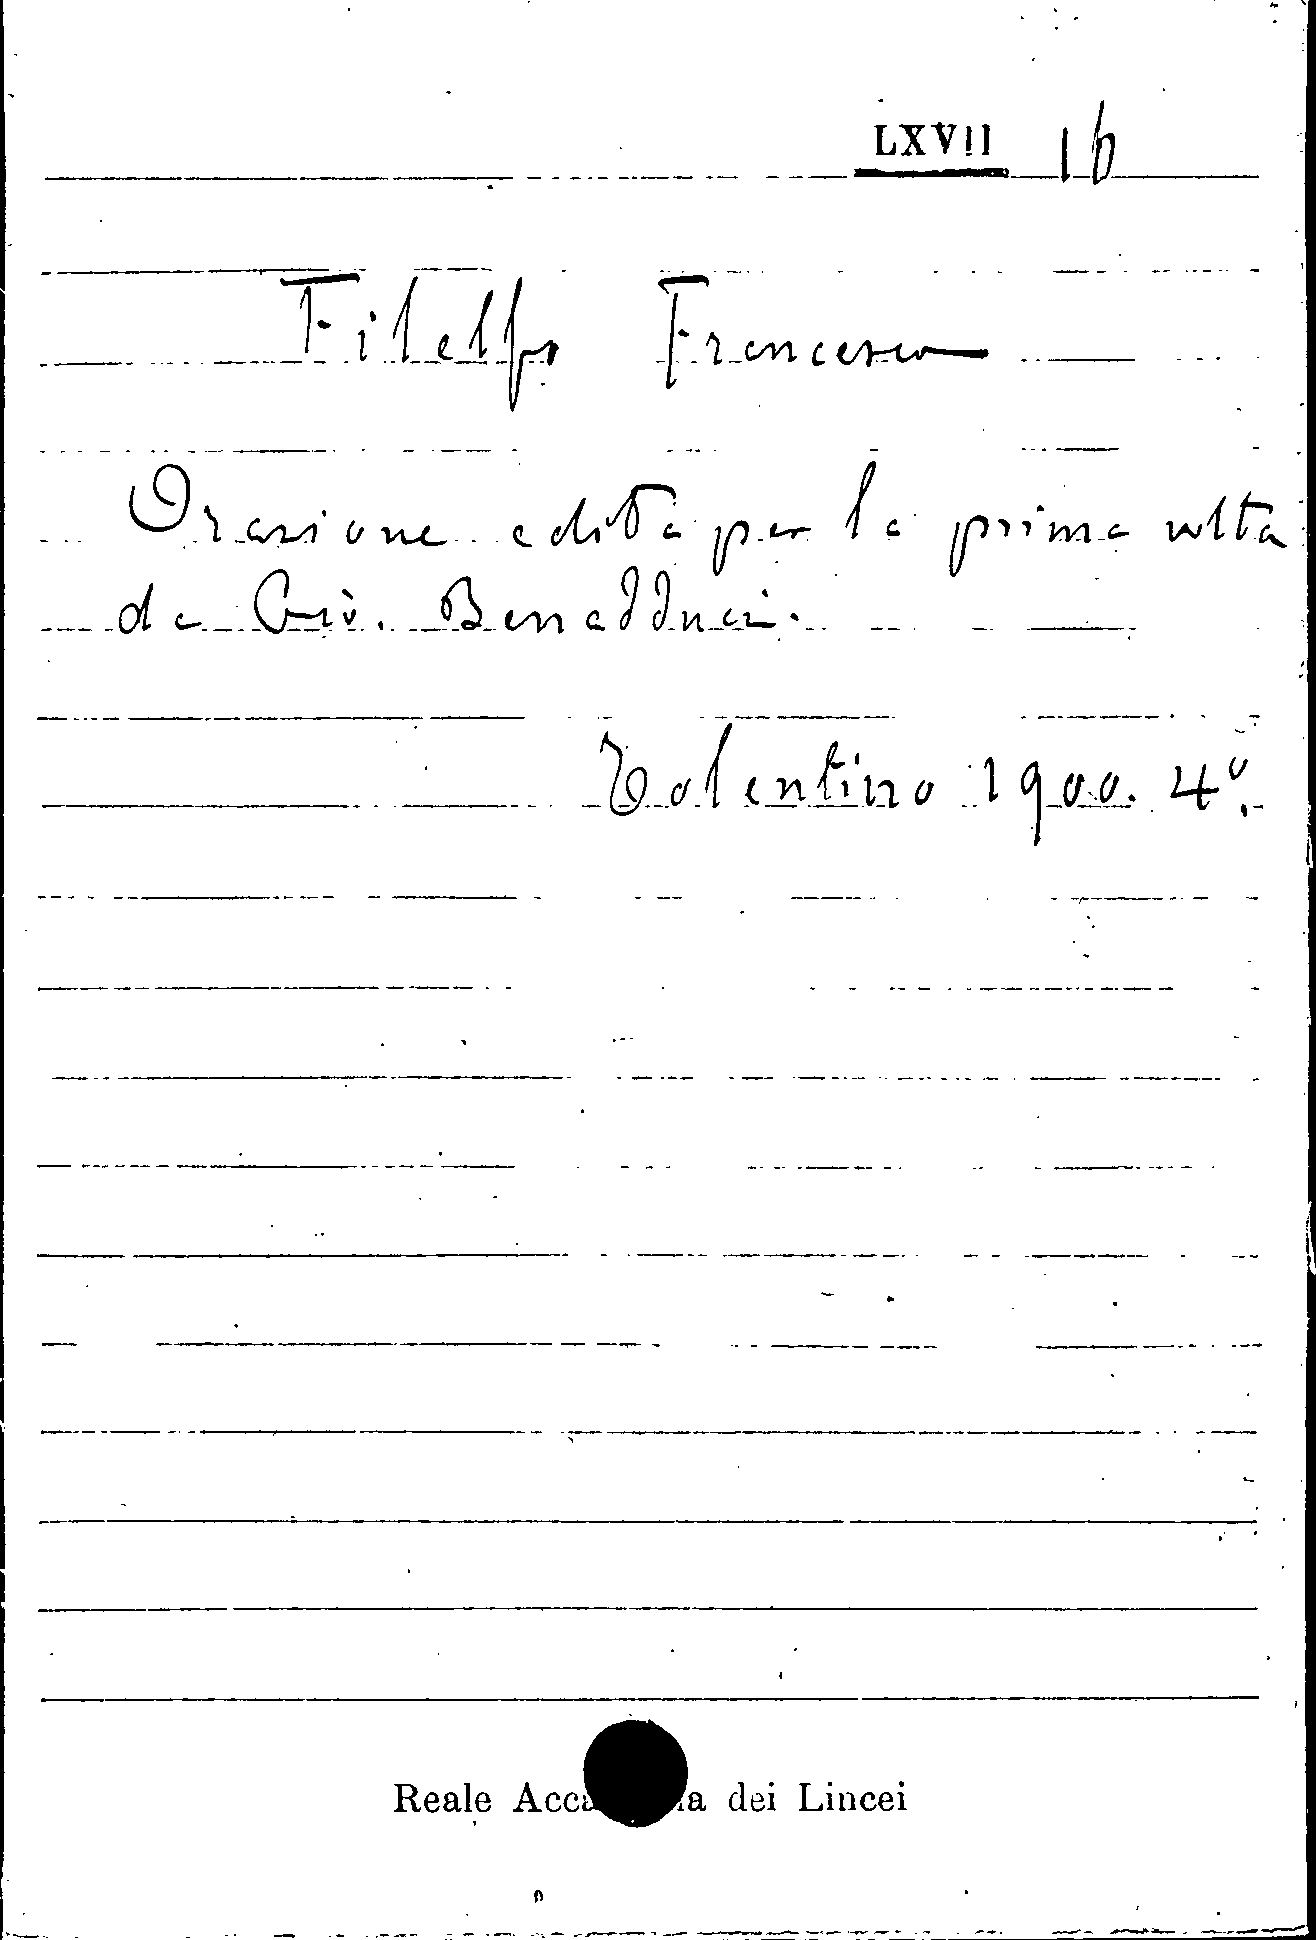 LXVII 16
Filelfo Francesco
Orazione edita per la prima volta
da Giò. Benadduci.
Tolentino 1900. 4º.
Reale Acca ia dei Lincei